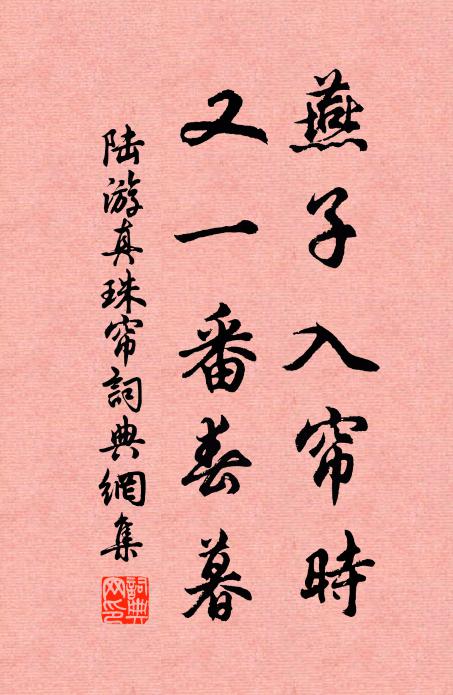 燕子入帘時
又一番春暮
陆游真珠帘詞典網集
詞典網印